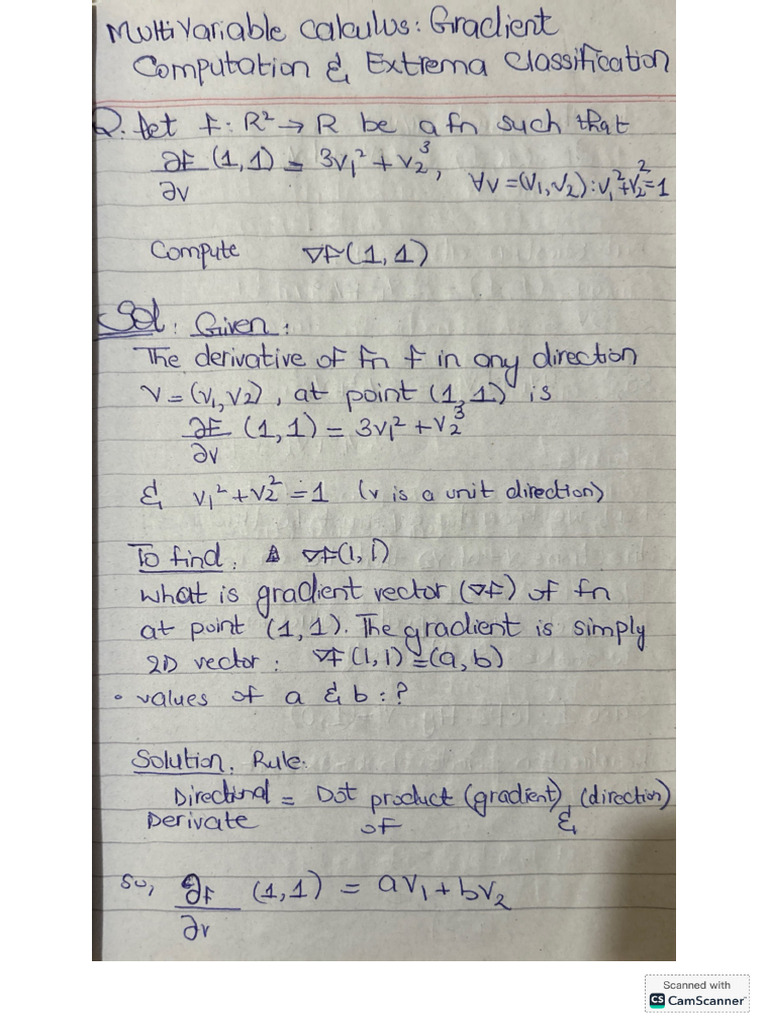 Multivariable Calculus: Gradient
Computation & Extrema Classification
Q. Let f: R² → R be a fn such that
∂f/∂v (1,1) = 3v₁² + v₂³, ∀v = (v₁,v₂): v₁²+v₂²=1
Compute ∇f(1,1)
Sol: Given:
The derivative of fn f in any direction
v = (v₁, v₂), at point (1,1) is
∂f/∂v (1,1) = 3v₁² + v₂³
& v₁² + v₂² = 1 (v is a unit direction)
To find: ∇f(1,1)
what is gradient vector (∇f) of fn
at point (1,1). The gradient is simply
2D vector: ∇f(1,1) = (a,b)
• values of a & b: ?
Solution: Rule:
Directinal = Dot product (gradient) (direction)
Derivate of &
so, ∂f/∂v (1,1) = av₁ + bv₂
Scanned with
CS CamScanner